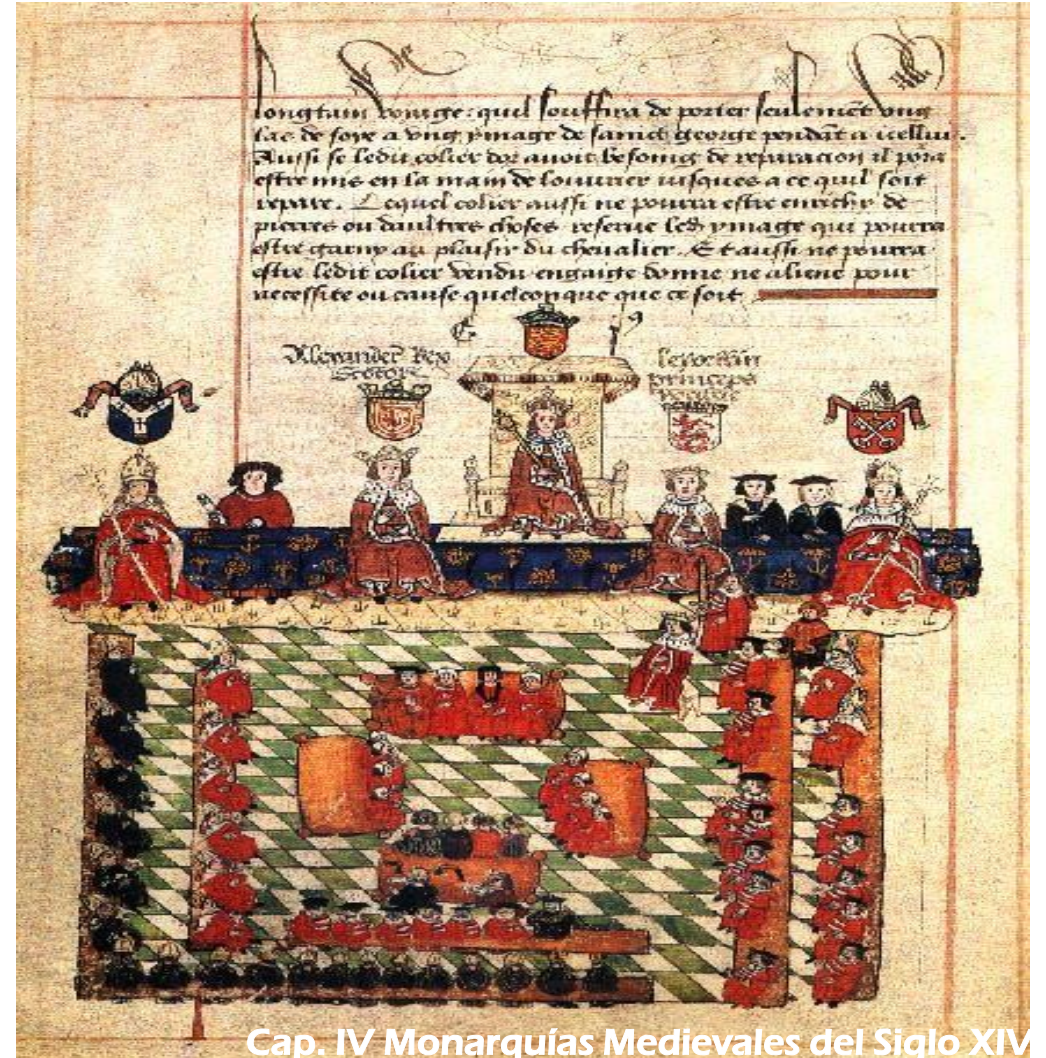 longtain voiaige: quil souffira de porter seulemēt vng
las de soye a vng ymage de sainct george pendāt a icelluy.
Aussi se ledit colier dor auoit besoing de reparacion il pora
estre mis en la main de louurier iusques a ce quil soit
repare. Lequel colier aussi ne pourra estre enrichy de
pierres ou daultres choses reserue led ymage qui pourra
estre garny au plaisir du cheualier. Et aussi ne pourra
estre ledit colier vendu engaige donne ne aliene pour
necessite ou cause quelconque que ce soit
Alexander Rex
princeps
Cap. IV Monarquías Medievales del Siglo XIV